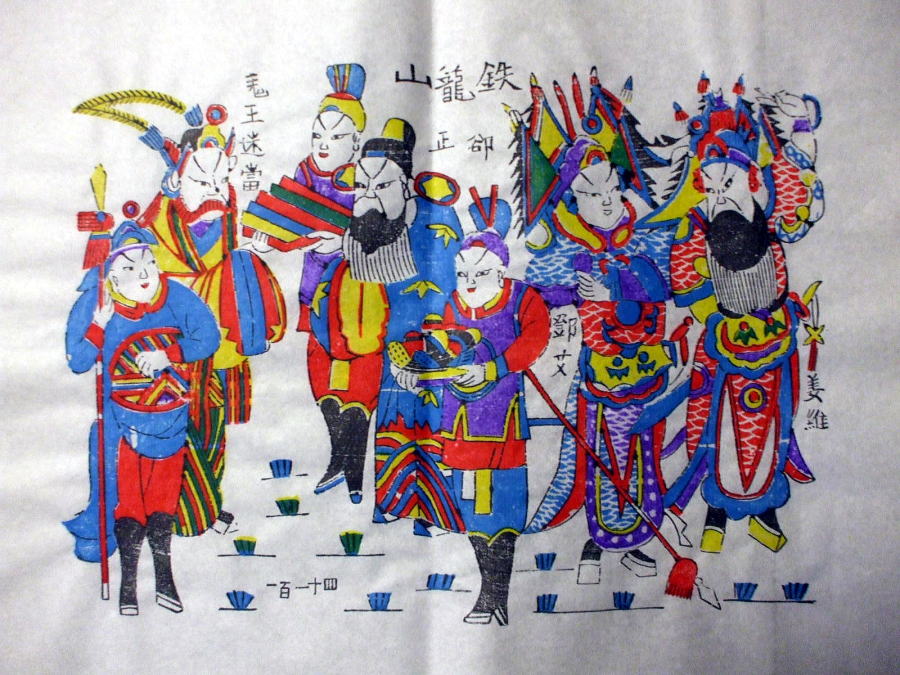 鉄龍山
卻正
羌王迷當
鄧艾
姜維
一百一十四